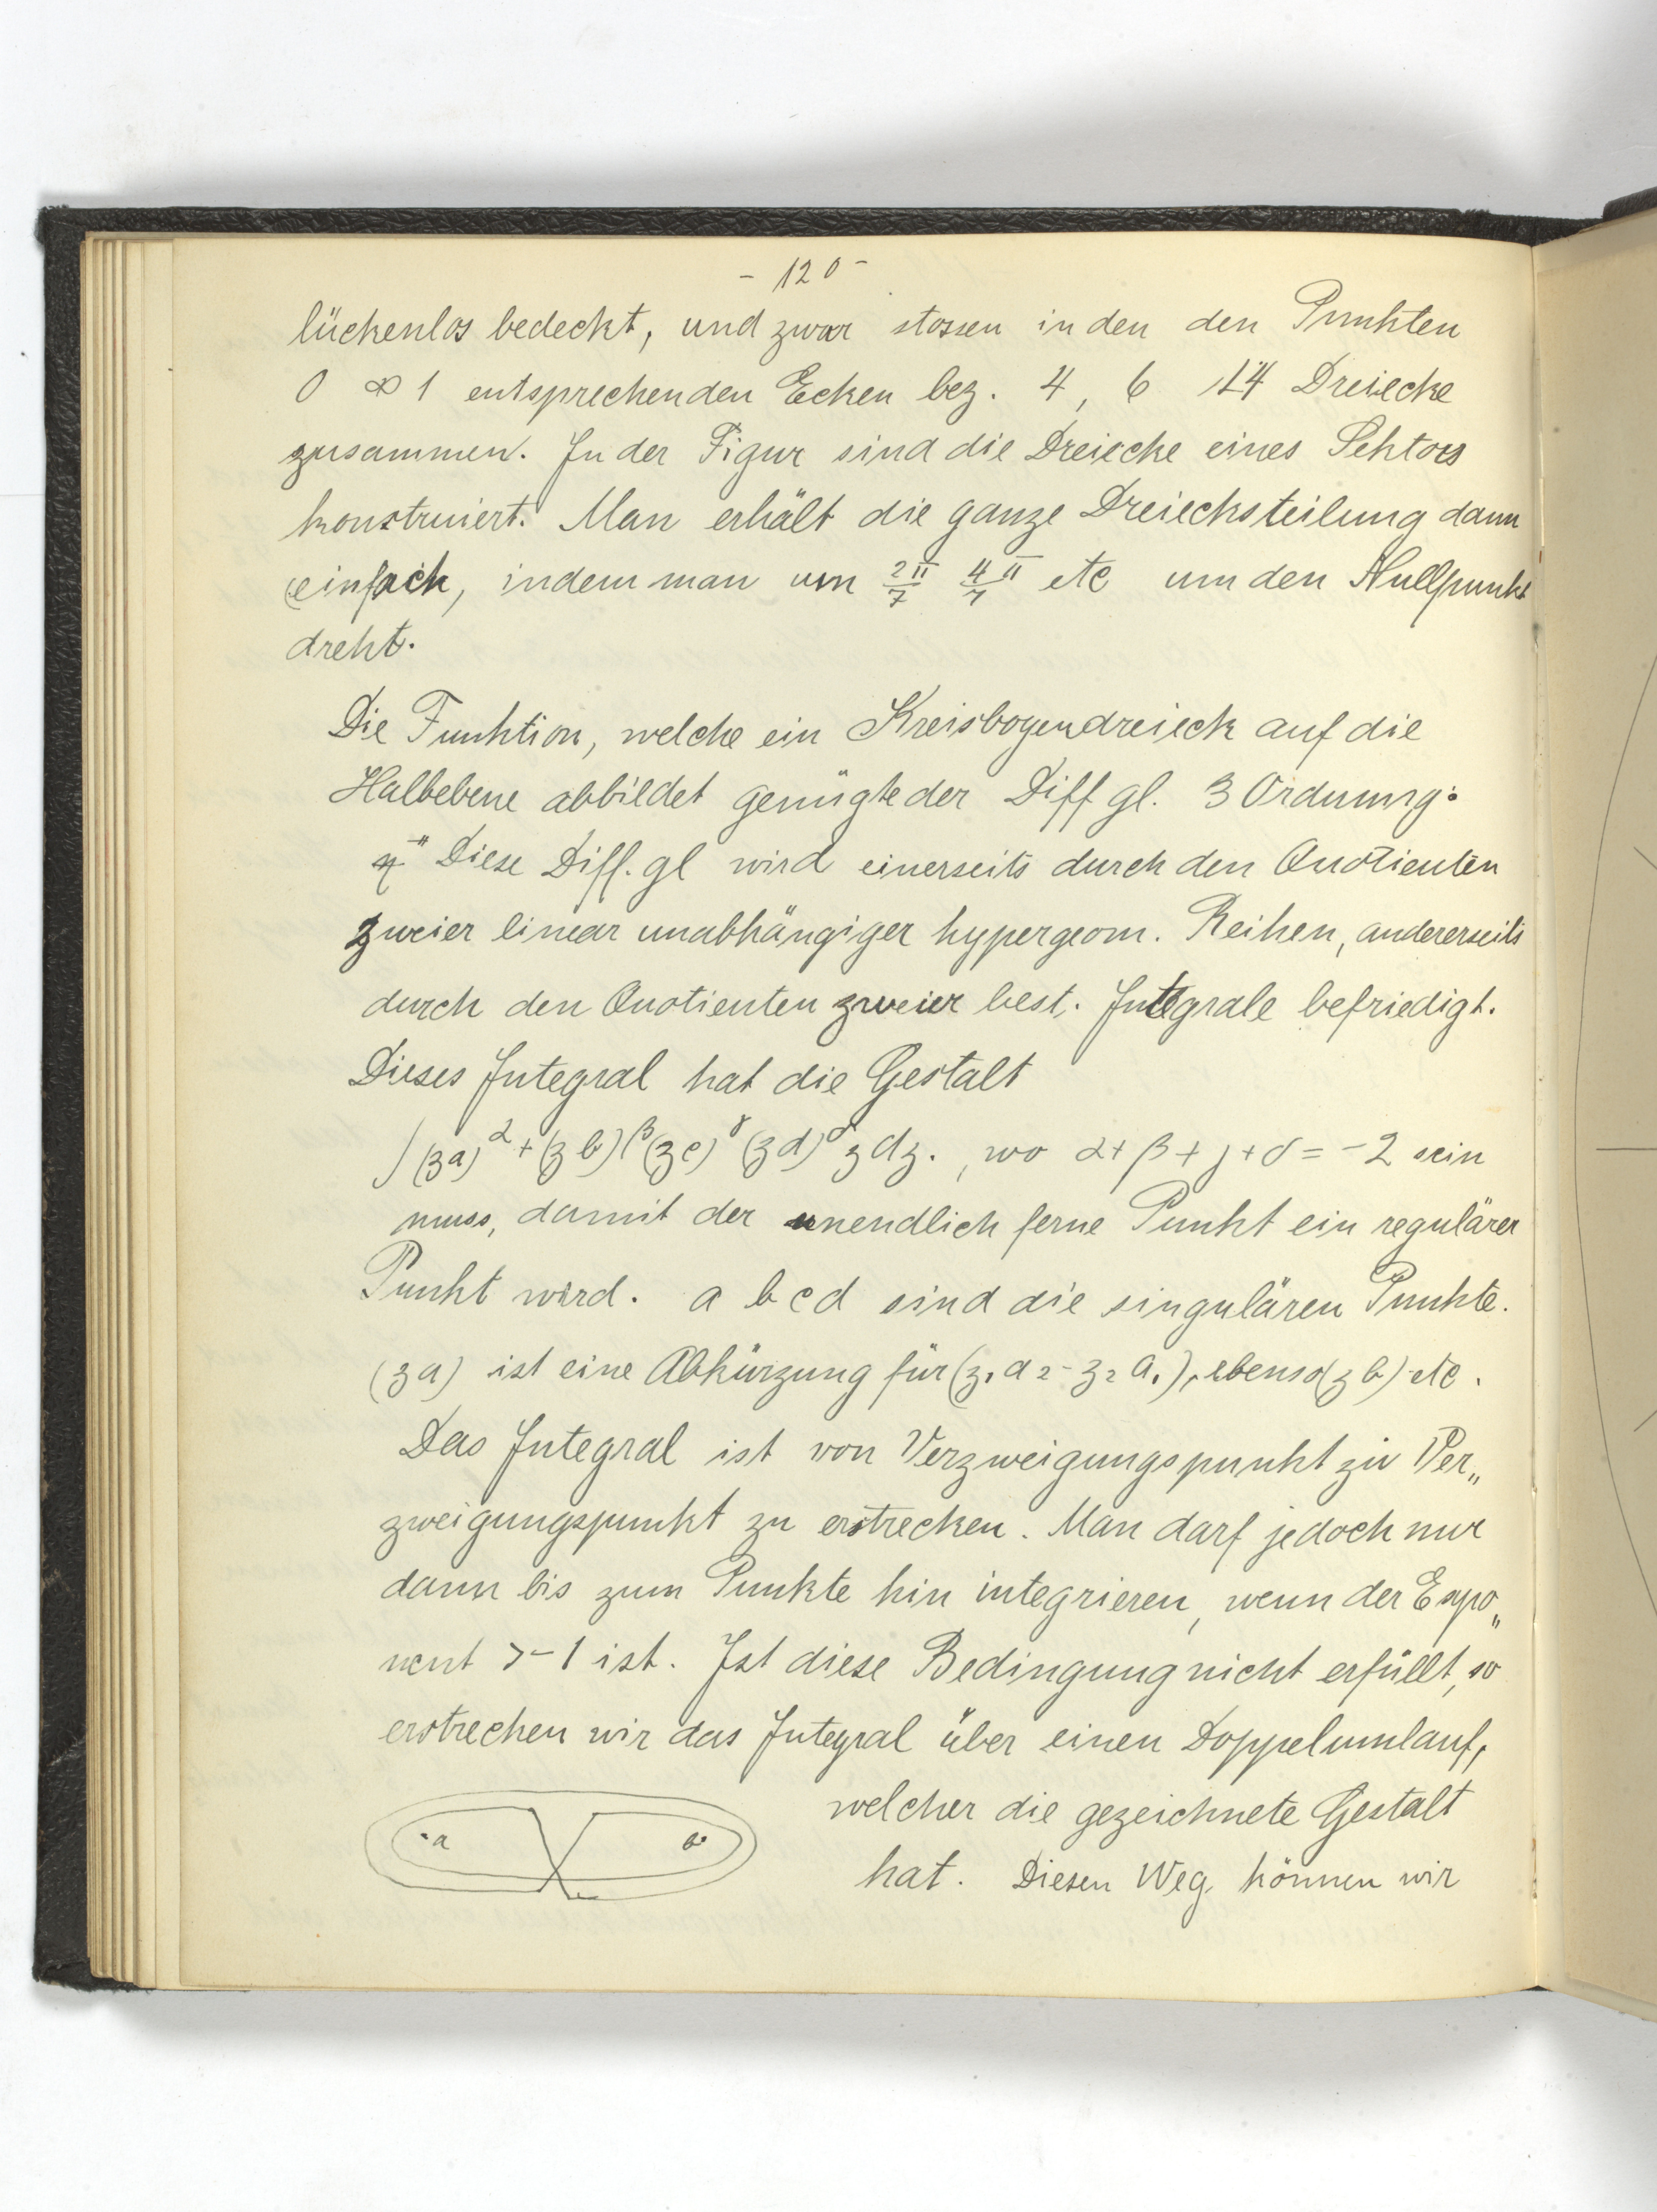 - 120 -
lückenlos bedeckt, und zwar stossen in den den Punkten
0 ∞ 1 entsprechenden Ecken bez. 4, 6 14 Dreiecke
zusammen. In der Figur sind die Dreiecke eines Sektors
konstruiert. Man erhält die ganze Dreiecksteilung dann
einfach, indem man um 2π/7 4π/7 etc um den Nullpunkt
dreht.
Die Funktion, welche ein Kreisbogendreieck auf die
Halbebene abbildet genügte der Diff gl. 3 Ordnung:
Diese Diff. gl wird einerseits durch den Quotienten
zweier linear unabhängiger hypergeom. Reihen, andererseits
durch den Quotienten zweier best. Integrale befriedigt.
Dieses Integral hat die Gestalt
∫(za)^α + (zb)^β (zc)^γ (zd)^δ z dz., wo α + β + γ + δ = -2 sein
muss, damit der unendlich ferne Punkt ein regulärer
Punkt wird. a b c d sind die singulären Punkte.
(za) ist eine Abkürzung für (z₁a₂ - z₂a₁), ebenso (zb) etc.
Das Integral ist von Verzweigungspunkt zu Ver„
zweigungspunkt zu erstrecken. Man darf jedoch nur
dann bis zum Punkte hin integrieren, wenn der Expo„
nent > -1 ist. Ist diese Bedingung nicht erfüllt, so
erstrecken wir das Integral über einen Doppelumlauf,
welcher die gezeichnete Gestalt
a b
hat. Diesen Weg können wir